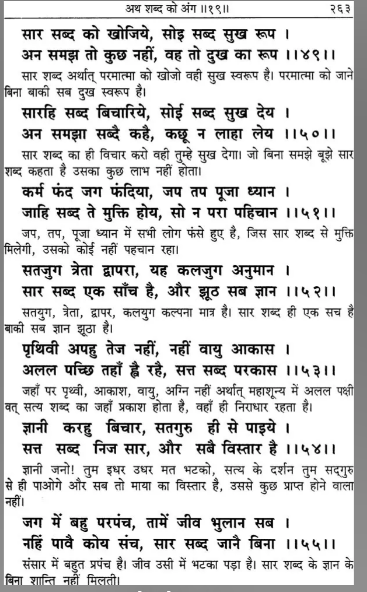 अथ शब्द को अंग ॥१९॥ २६३
सार सब्द को खोजिये, सोइ सब्द सुख रूप ।
अन समझ तो कुछ नहीं, वह तो दुख का रूप ।।४९।।
सार शब्द अर्थात् परमात्मा को खोजो वही सुख स्वरूप है। परमात्मा को जाने
बिना बाकी सब दुख स्वरूप है।
सारहि सब्द बिचारिये, सोई सब्द सुख देय ।
अन समझा सब्दै कहै, कछू न लाहा लेय ।।५०।।
सार शब्द का ही विचार करो वही तुम्हे सुख देगा। जो बिना समझे बूझे सार
शब्द कहता है उसका कुछ लाभ नहीं होता।
कर्म फंद जग फंदिया, जप तप पूजा ध्यान ।
जाहि सब्द ते मुक्ति होय, सो न परा पहिचान ।।५१।।
जप, तप, पूजा ध्यान में सभी लोग फंसे हुए है, जिस सार शब्द से मुक्ति
मिलेगी, उसको कोई नहीं पहचान रहा।
सतजुग त्रेता द्वापरा, यह कलजुग अनुमान ।
सार सब्द एक साँच है, और झूठ सब ज्ञान ।।५२।।
सतयुग, त्रेता, द्वापर, कलयुग कल्पना मात्र है। सार शब्द ही एक सच है
बाकी सब ज्ञान झूठा है।
पृथिवी अपहु तेज नहीं, नहीं वायु आकास ।
अलल पच्छि तहाँ ह्वै रहै, सत्त सब्द परकास ।।५३।।
जहाँ पर पृथ्वी, आकाश, वायु, अग्नि नहीं अर्थात् महाशून्य में अलल पक्षी
वत् सत्य शब्द का जहाँ प्रकाश होता है, वहाँ ही निराधार रहता है।
ज्ञानी करहु बिचार, सतगुरु ही से पाइये ।
सत्त सब्द निज सार, और सबै विस्तार है ।।५४।।
ज्ञानी जनो! तुम इधर उधर मत भटको, सत्य के दर्शन तुम सद्गुरु
से ही पाओगे और सब तो माया का विस्तार है, उससे कुछ प्राप्त होने वाला
नहीं।
जग में बहु परपंच, तामें जीव भुलान सब ।
नहिं पावै कोय संच, सार सब्द जानै बिना ।।५५।।
संसार में बहुत प्रपंच है। जीव उसी में भटका पड़ा है। सार शब्द के ज्ञान के
बिना शान्ति नहीं मिलती।